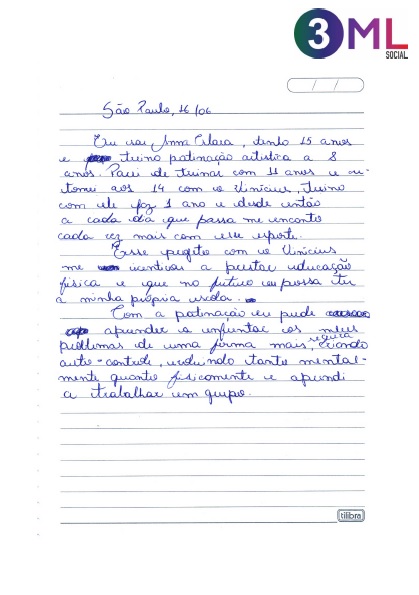 3ML
SOCIAL
/ /
São Paulo, 16/06
Eu sou Anna Clara, tenho 15 anos
e treino patinação artística a 8
anos. Parei de treinar com 11 anos e re-
tornei aos 14 com o Vinícius, treino
com ele faz 1 ano e desde então
a cada dia que passa me encanto
cada vez mais com esse esporte.
Esse projeto com o Vinícius
me incentivou a prestar educação
física e que no futuro eu possa ter
a minha própria escola.
Com a patinação eu pude
aprender a enfrentar os meus
problemas de uma forma mais segura, criando
auto-controle, evoluindo tanto mental-
mente quanto fisicamente e aprendi
a trabalhar em grupo.
tilibra